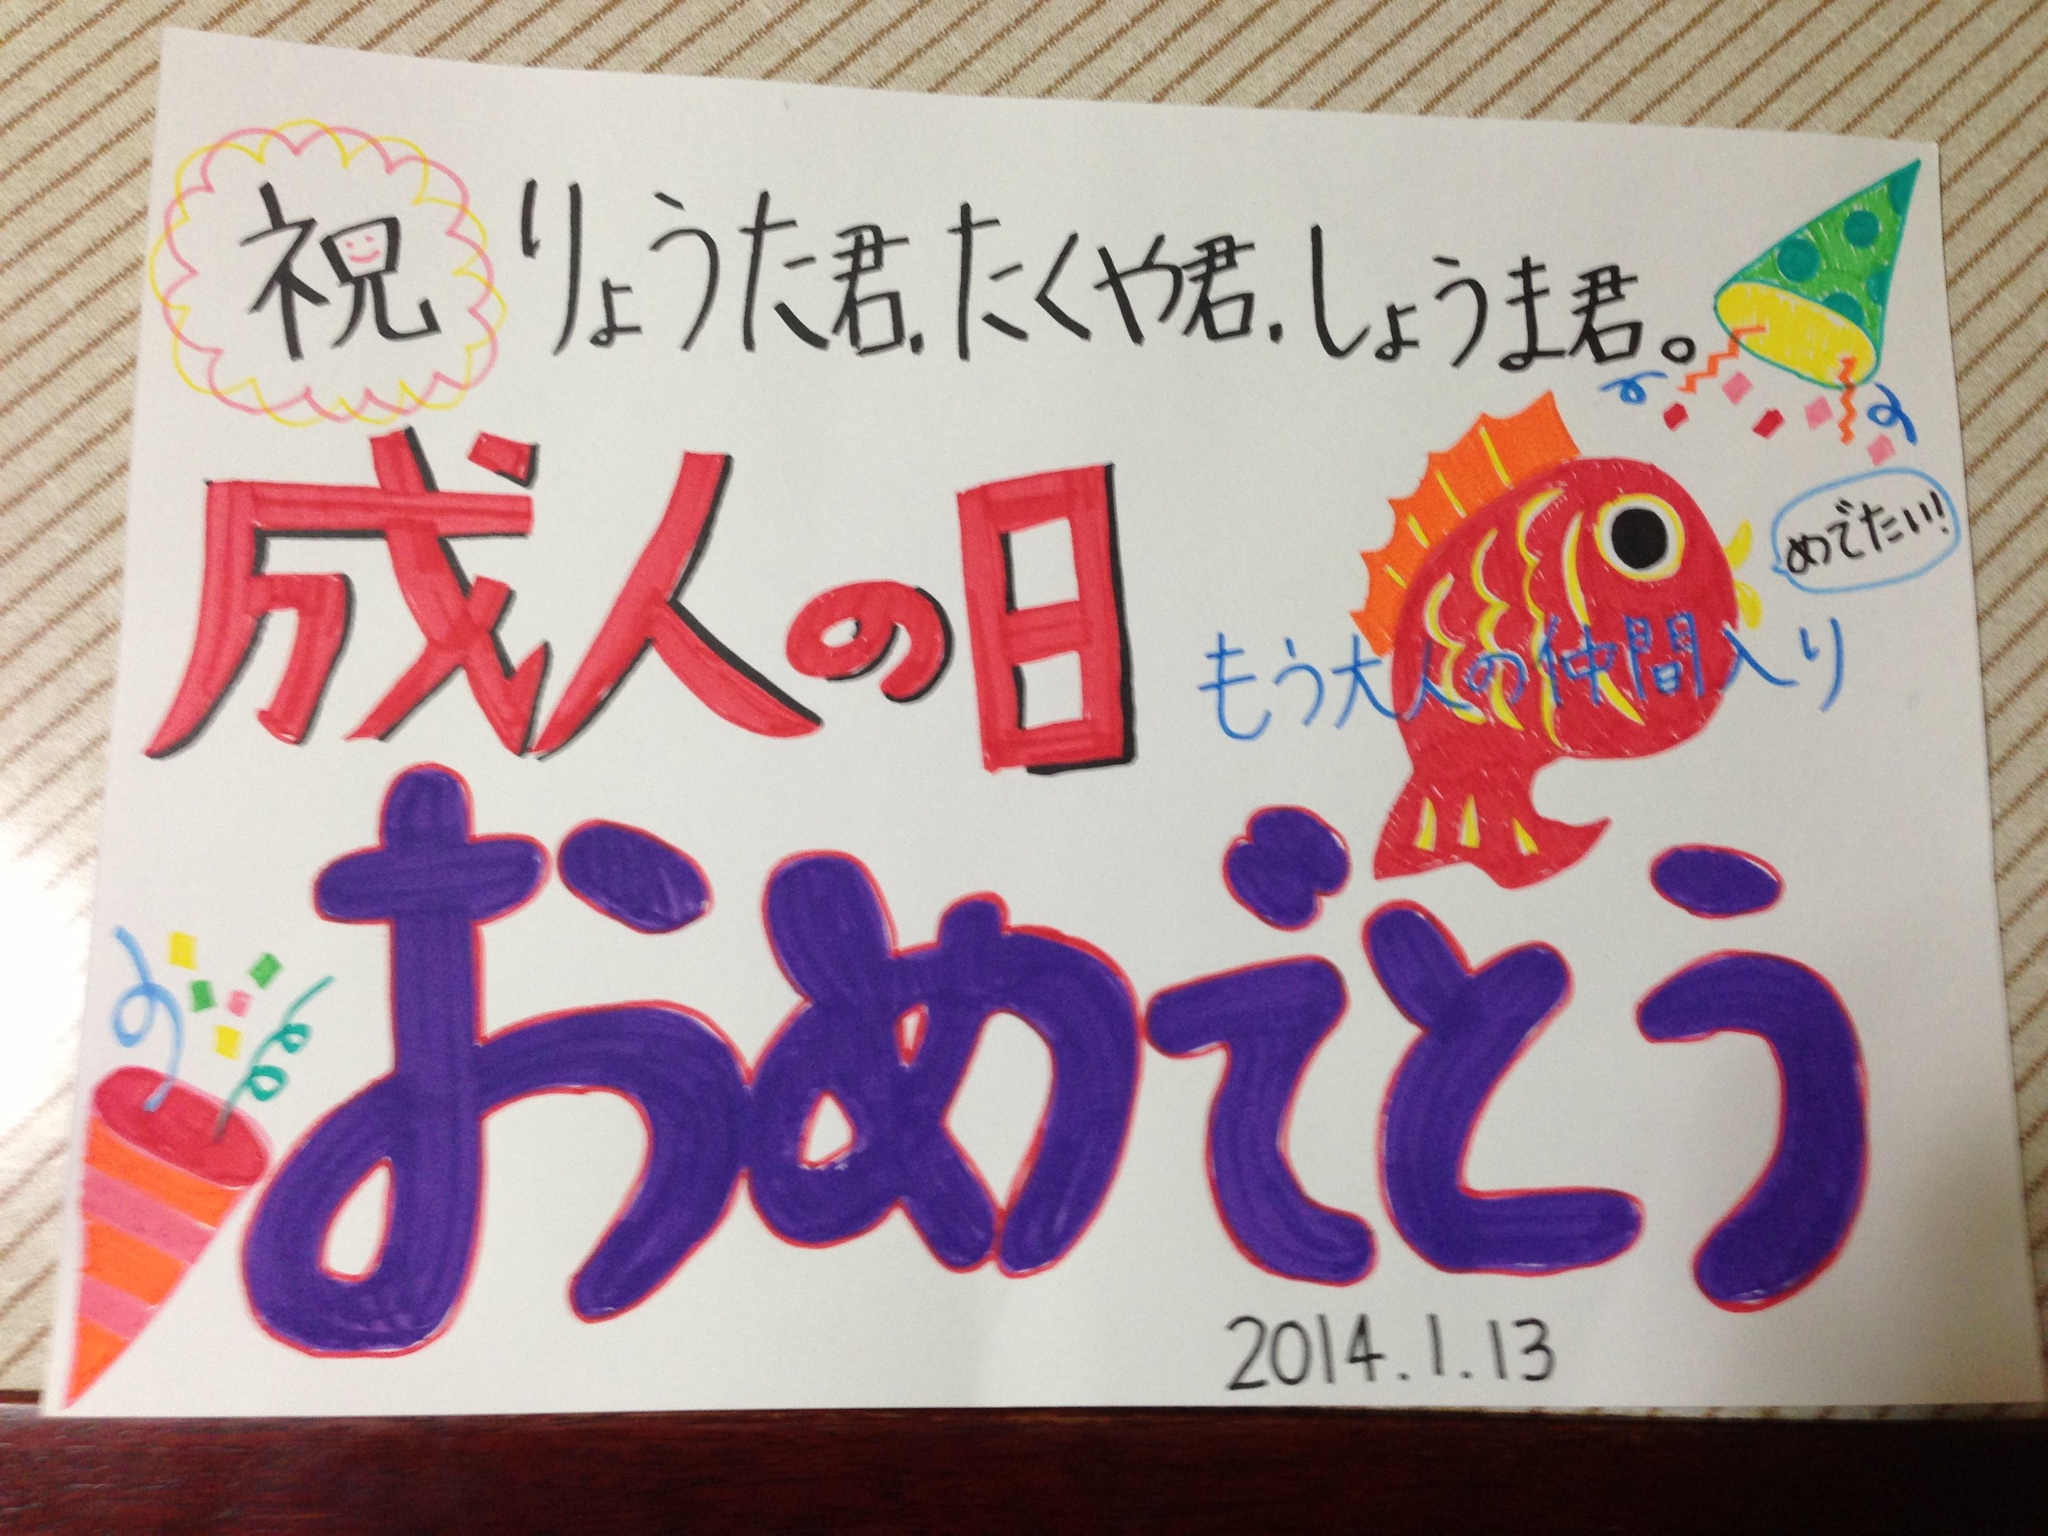 祝 りょうた君.たくや君.しょうま君。
成人の日
めでたい!
もう大人の仲間入り
おめでとう
2014.1.13